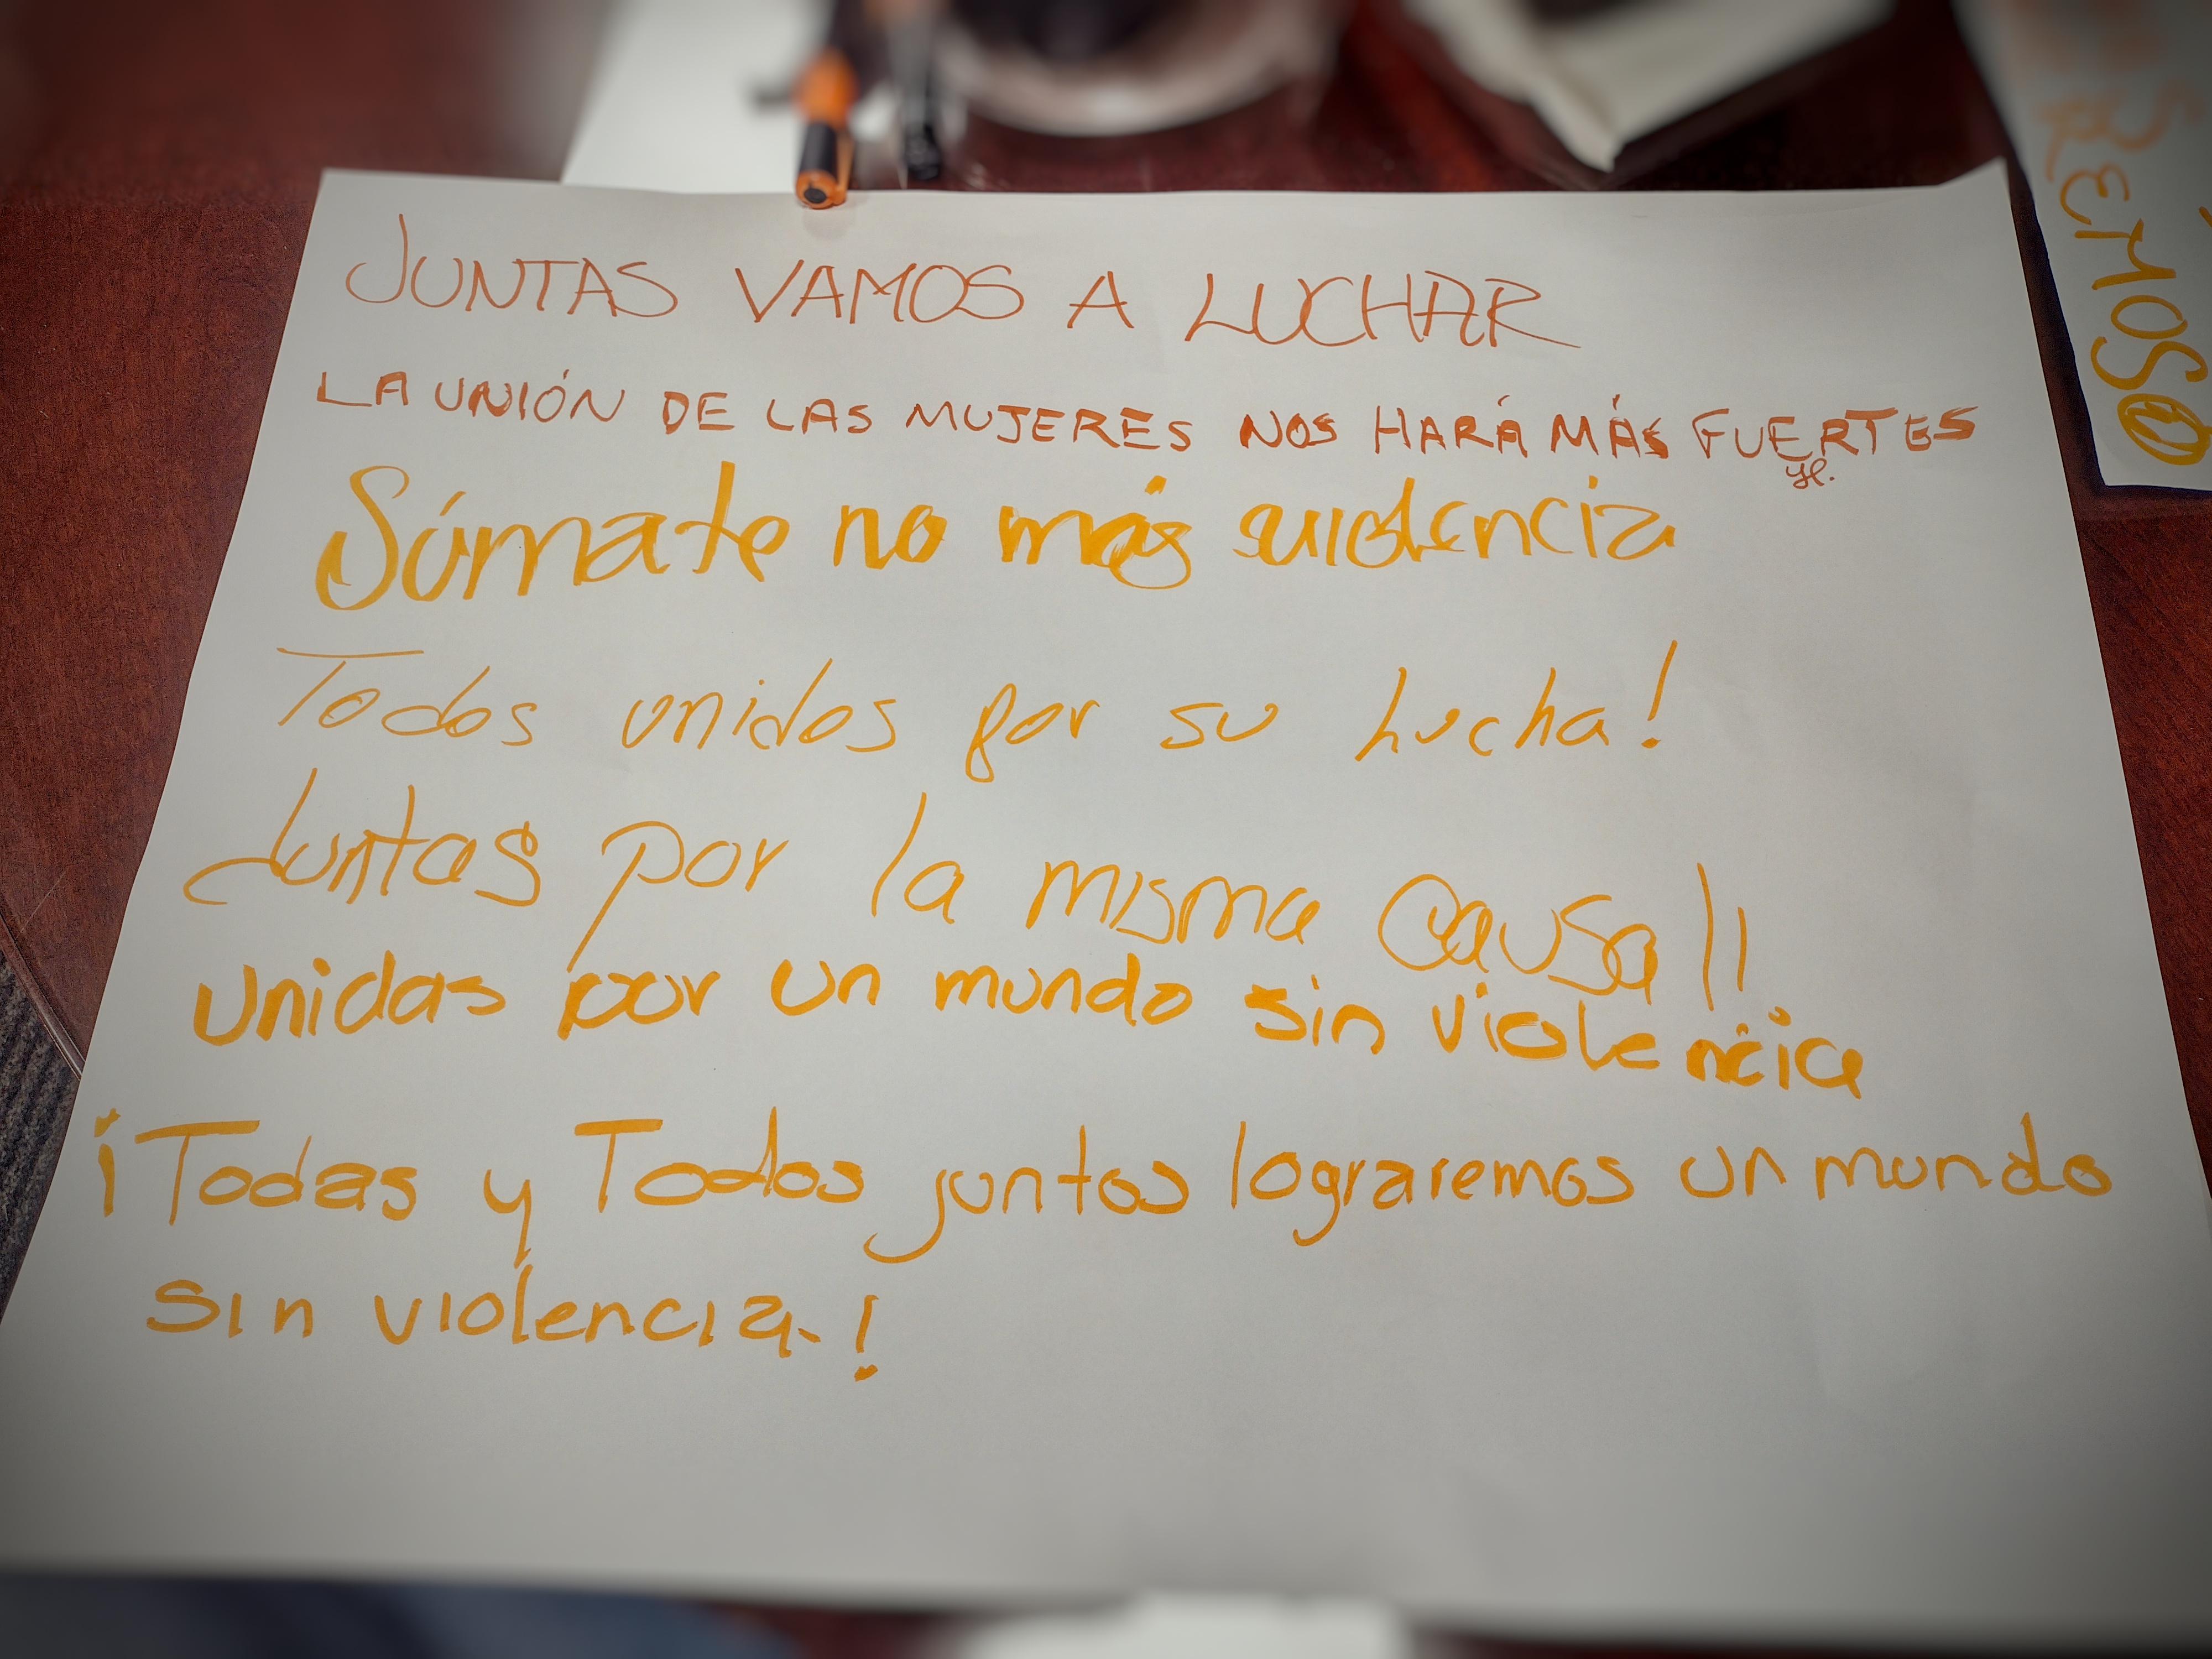 JUNTAS VAMOS A LUCHAR
LA UNIÓN DE LAS MUJERES NOS HARÁ MÁS FUERTES
Súmate no más violencia
Todos unidos por su Lucha!
Juntas por la misma causa!!
unidas por un mundo sin violencia
¡Todas y Todos juntos lograremos un mundo
sin violencia.!
REMOS